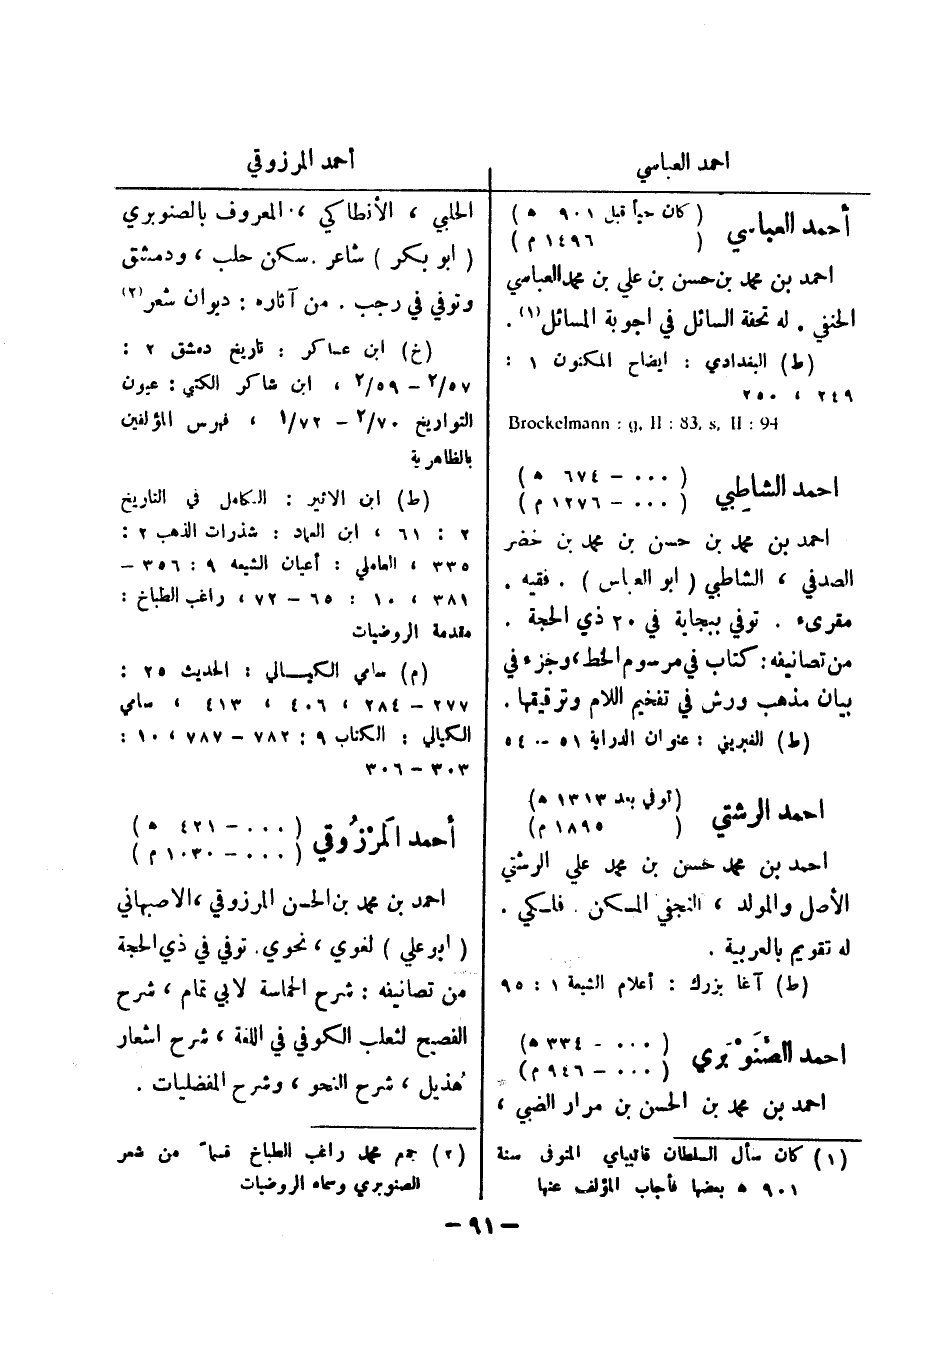 احمد العباسي
أحمد العباسي ( كان حياً قبل ٩٠١ ه )
( ١٤٩٦ م )
احمد بن محمد بن حسن بن علي بن محمد العباسي
الحنفي . له تحفة السائل في اجوبة المسائل (١) .
(ط) البغدادي : ايضاح المكنون ١ :
٢٤٩ ، ٢٥٠
Brockelmann : g, II : 83, s, II : 94
احمد الشاطبي ( ٠٠٠ – ٦٧٤ ه )
( ٠٠٠ – ١٢٧٦ م )
احمد بن محمد بن حسن بن محمد بن خضر
الصدفي ، الشاطبي ( ابو العباس ) . فقيه .
مقرىء . توفي ببجاية في ٢٠ ذي الحجة .
من تصانيفه : كتاب في مرسوم الخط ، وجزء في
بيان مذهب ورش في تفخيم اللام وترقيقها .
(ط) الغبريني : عنوان الدراية ٥١ – ٥٤
احمد الرشتي (توفي بعد ١٣١٣ ه)
( ١٨٩٥ م)
احمد بن محمد حسن بن محمد علي الرشتي
الأصل والمولد ، النجفي المسكن . فلكي .
له تقويم بالعربية .
(ط) آغا بزرك : أعلام الشيعة ١ : ٩٥
احمد الصَّنَوْبَري ( ٠٠٠ - ٣٣٤ ه)
( ٠٠٠ – ٩٤٦ م)
احمد بن محمد بن الحسن بن مرار الضبي ،
(١) كان سأل السلطان قاتيباي المتوفى سنة
٩٠١ ه بعضها فأجاب المؤلف عنها
أحمد المرزوقي
الحلبي ، الأنطاكي ، المعروف بالصنوبري
( ابو بكر ) شاعر . سكن حلب ، ودمشق
وتوفي في رجب . من آثاره : ديوان شعر (٢)
(خ) ابن عساكر : تاريخ دمشق ٢ :
٢/٥٧ – ٢/٥٩ ، ابن شاكر الكتبي : عيون
التواريخ ٢/٧٠ – ١/٧٢ ، فهرس المؤلفين
بالظاهرية
(ط) ابن الاثير : الكامل في التاريخ
٢ : ٦١ ، ابن العماد : شذرات الذهب ٢ :
٣٣٥ ، العاملي : أعيان الشيعة ٩ : ٣٥٦ –
٣٨١ ، ١٠ : ٦٥ – ٧٢ ، راغب الطباخ :
مقدمة الروضيات
(م) سامي الكيالي : الحديث ٢٥ :
٢٧٧ – ٢٨٤ ، ٤٠٦ ، ٤١٣ ، سامي
الكيالي : الكتاب ٩ : ٧٨٢ – ٧٨٧ ، ١٠ :
٣٠٣ – ٣٠٦
أحمد المَرْزُوقي ( ٠٠٠ – ٤٢١ ه )
( ٠٠٠ – ١٠٣٠ م )
احمد بن محمد بن الحسن المرزوقي ، الاصبهاني
( ابو علي ) لغوي ، نحوي . توفي في ذي الحجة
من تصانيفه : شرح الحماسة لابي تمام ، شرح
الفصيح لثعلب الكوفي في اللغة ، شرح اشعار
هُذيل ، شرح النحو ، وشرح المفضليات .
(٢) جمع محمد راغب الطباخ قسماً من شعر
الصنوبري وسماه الروضيات
– ٩١ –